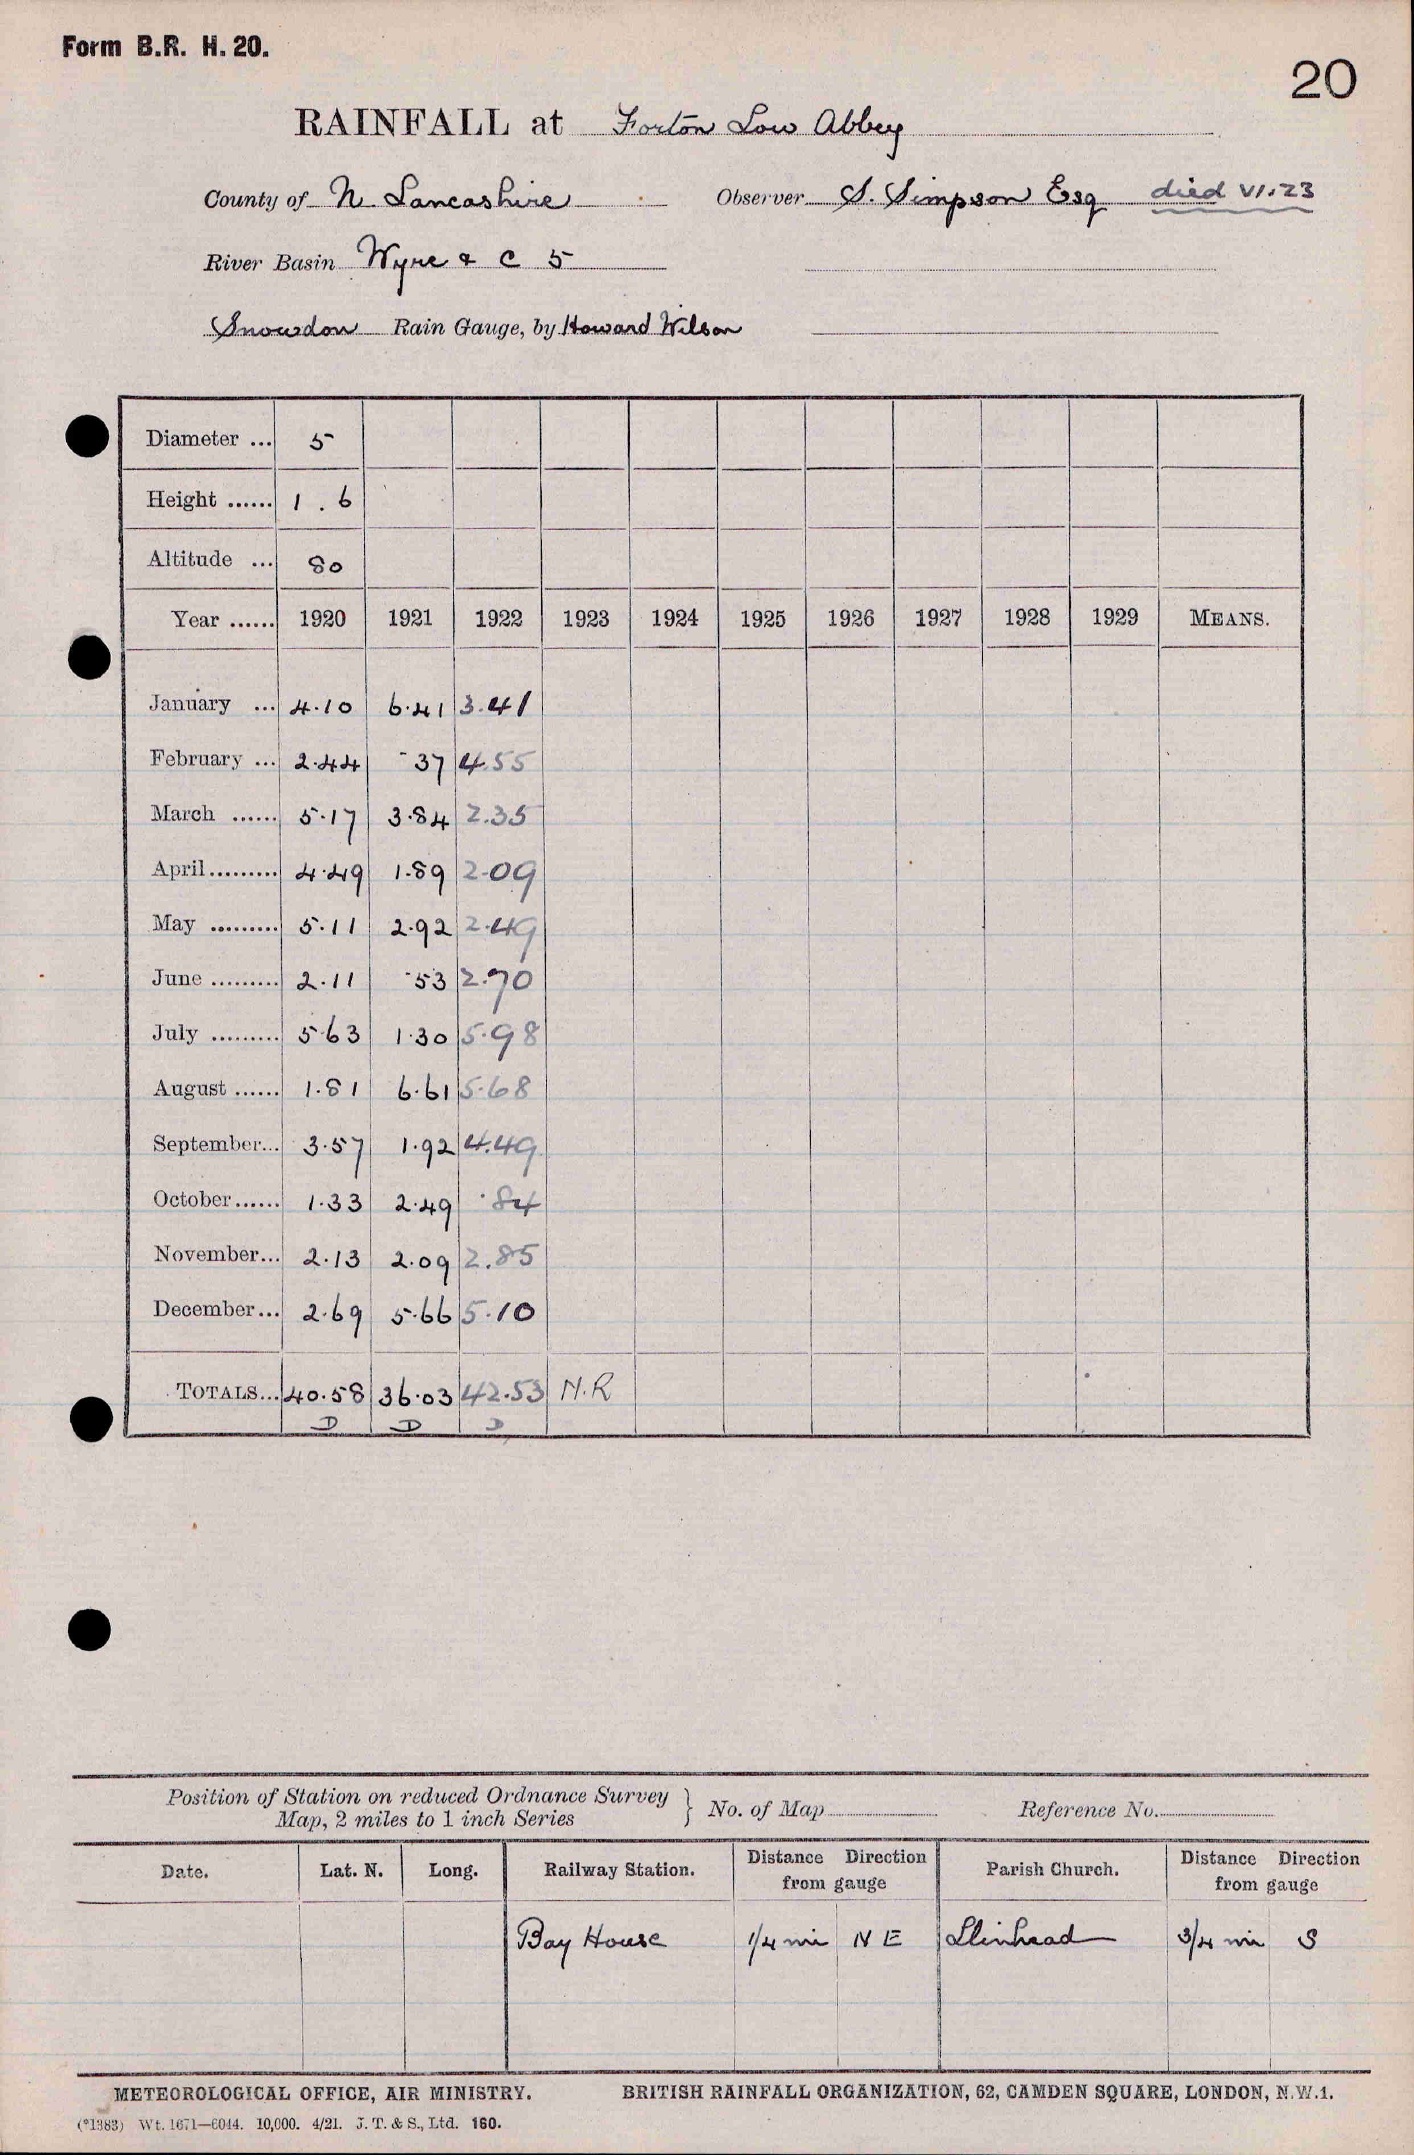 Form B.R. H. 20.
20
RAINFALL at Forton Low Abbey
County of N Lancashire Observer S. Simpson Esq died VI.23
River Basin Wyre & C 5
Snowdon Rain Gauge, by Howard Wilson
Diameter ... 5
Height ...... 1 . 6
Altitude ... 80
Year ...... 1920 1921 1922 1923 1924 1925 1926 1927 1928 1929 MEANS.
January ... 4.10 6.41 3.41
February ... 2.44 .37 4.55
March ...... 5.17 3.84 2.35
April......... 4.49 1.89 2.09
May ......... 5.11 2.92 2.49
June ......... 2.11 .53 2.70
July ......... 5.63 1.30 5.98
August ...... 1.81 6.61 5.68
September... 3.57 1.92 4.49
October...... 1.33 2.49 .84
November... 2.13 2.09 2.85
December... 2.69 5.66 5.10
TOTALS... 40.58 36.03 42.53 N.R
D D D
Position of Station on reduced Ordnance Survey
Map, 2 miles to 1 inch Series } No. of Map Reference No.
Date. Lat. N. Long. Railway Station. Distance Direction from gauge Parish Church. Distance Direction from gauge
Bay House 1/4 mi N E 3/4 mi S
METEOROLOGICAL OFFICE, AIR MINISTRY. BRITISH RAINFALL ORGANIZATION, 62, CAMDEN SQUARE, LONDON, N.W.1.
(*1383) Wt. 1671—6044. 10,000. 4/21. J. T. & S., Ltd. 160.